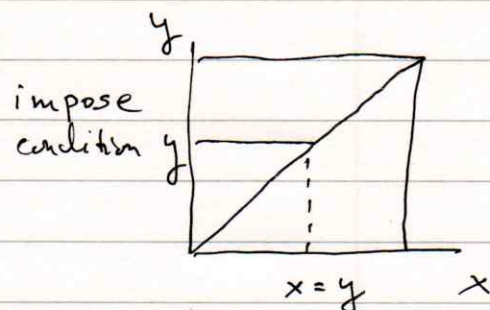 y
impose
condition y
x = y x